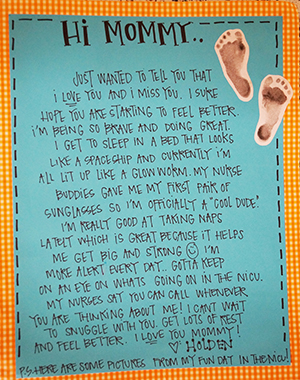 Hi MOMMY..
JUST WANTED TO TELL YOU THAT
I LOVE YOU AND I MISS YOU. I SURE
HOPE YOU ARE STARTING TO FEEL BETTER.
I'M BEING SO BRAVE AND DOING GREAT.
I GET TO SLEEP IN A BED THAT LOOKS
LIKE A SPACESHIP AND CURRENTLY I'M
ALL LIT UP LIKE A GLOW WORM. MY NURSE
BUDDIES GAVE ME MY FIRST PAIR OF
SUNGLASSES SO I'M OFFICIALLY A "COOL DUDE".
I'M REALLY GOOD AT TAKING NAPS
LATELY WHICH IS GREAT BECAUSE IT HELPS
ME GET BIG AND STRONG ☺ I'M
MORE ALERT EVERY DAY.. GOTTA KEEP
ON AN EYE ON WHATS GOING ON IN THE NICU.
MY NURSES SAY YOU CAN CALL WHENEVER
YOU ARE THINKING ABOUT ME! I CANT WAIT
TO SNUGGLE WITH YOU. GET LOTS OF REST
AND FEEL BETTER. I LOVE YOU MOMMY!
♡ HOLDEN
P.S. HERE ARE SOME PICTURES FROM MY FUN DAY IN THE NICU!